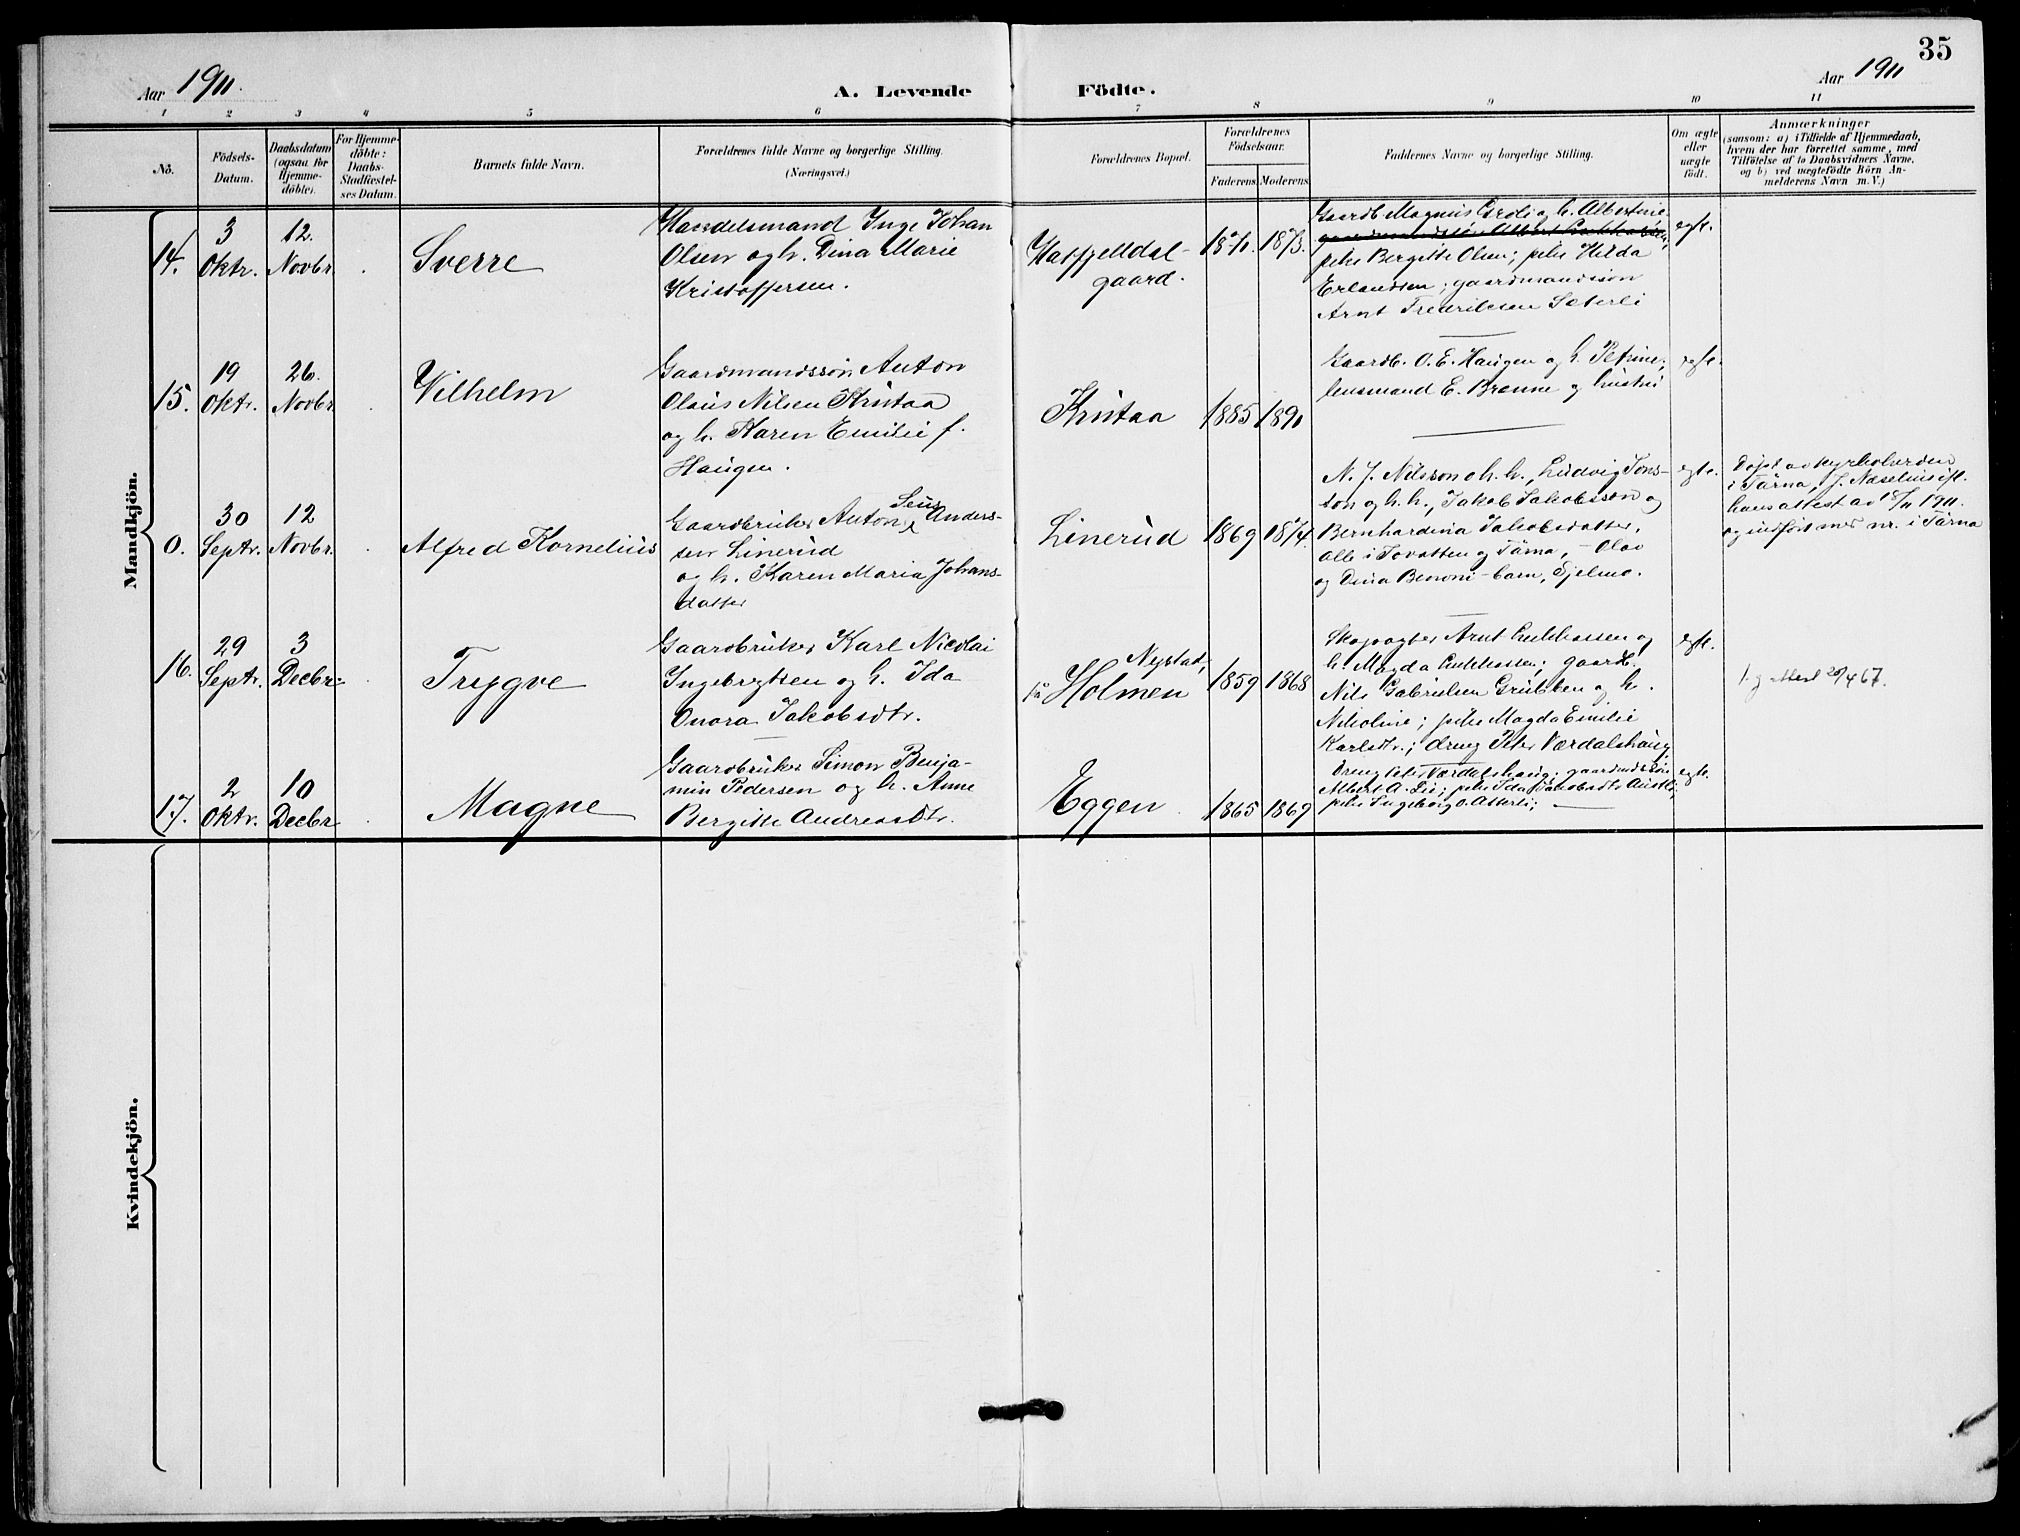 35
Aar 1911.
A. Levende Födte.
Aar 1911
1 2 3 4 5 6 7 8 9 10 11
No.
Födsels-Datum.
Daabsdatum (ogsaa for Hjemme-döbte).
For Hjemme-döbte: Daabs-Stadfæstel-ses Datum.
Barnets fulde Navn.
Forældrenes fulde Navne og borgerlige Stilling.
(Næringsvei.)
Forældrenes Bopæl.
Forældrenes Födselsaar.
Faderens Moderens
Faddernes Navne og borgerlige Stilling.
Om ægte eller uægte födt.
Anmærkninger
(saasom: a) i Tilfælde af Hjemmedaab,
hvem der har forrettet samme, med
Tilföielse af to Daabsvidners Navne,
og b) ved uægtefödte Börn An-
melderens Navn m. V.)
Mandkjön.
14.
3 Oktr.
12. Novbr.
Sverre
Handelsmand Inge Johan
Olsen og h. Dina Marie
Kristoffersen.
Hatfjelldal-
gaard.
1871. 1873.
Gaardb. Magnus h. Albertine
pike Bergitte Olsen; pike Hilda
Erlandsen; gaardmandssøn
Arnt Fredriksen Sæterli
egte.
15.
19 Oktr.
26. Novbr
Vilhelm
Gaardmandssøn Anton
Olaus Nilsen Krutaa
og h. Karen Emilie f.
Haugen.
Krutaa
1885 1890
Gaardb. O. E. Haugen og h. Petrine;
lensmand E. Brænne og hustru
egte.
0.
30 Septr.
12 Novbr.
Alfred Kornelius
Gaardbruker Anton Senius Anders-
sen Linerud
og h. Karen Maria Johans-
datter
Linerud
1869 1874.
N. J. Nilsson o. h. h., Ludvig Jons-
son og h. h., Jakob Jakobsson og
Bernhardina Jakobsdatter,
alle i Jovatten og Tärna, - Olav
og Dina Benoni-barn, Sjelmo.
egte.
Døpt av kyrkoherden
i Tärna, J. Næselius ifl.
hans attest av 18/11 1911.
og indført med nr. i Tärna
16.
29 Septr.
3 Decbr.
Trygve
Gaardbruker Karl Nicolai
Ingebrigtsen og h. Ida
Onora Jakobsdtr.
Nystad,
paa Holmen
1859 1868
Skogvogter Arnt Lukkassen og
h. Magda Lukkassen; gaardb.
Nils Gabrielsen Grubben og h.
Nikoline; pike Magda Emilie
Karlsdtr.; dreng Peter Værdalshaug
egte.
attest 20/4 67.
17.
2 Oktr.
10 Decbr
Magne
Gaardbruker Simon Benja-
min Pedersen og h. Anne
Bergitte Andreasdtr.
Eggen
1865 1869
Dreng Peter Værdalshaug; gaardmdssøn
Albert A. Lie; pike Ida Jakobsdtr
pike Ingeborg O.
egte.
Kvindekjön.